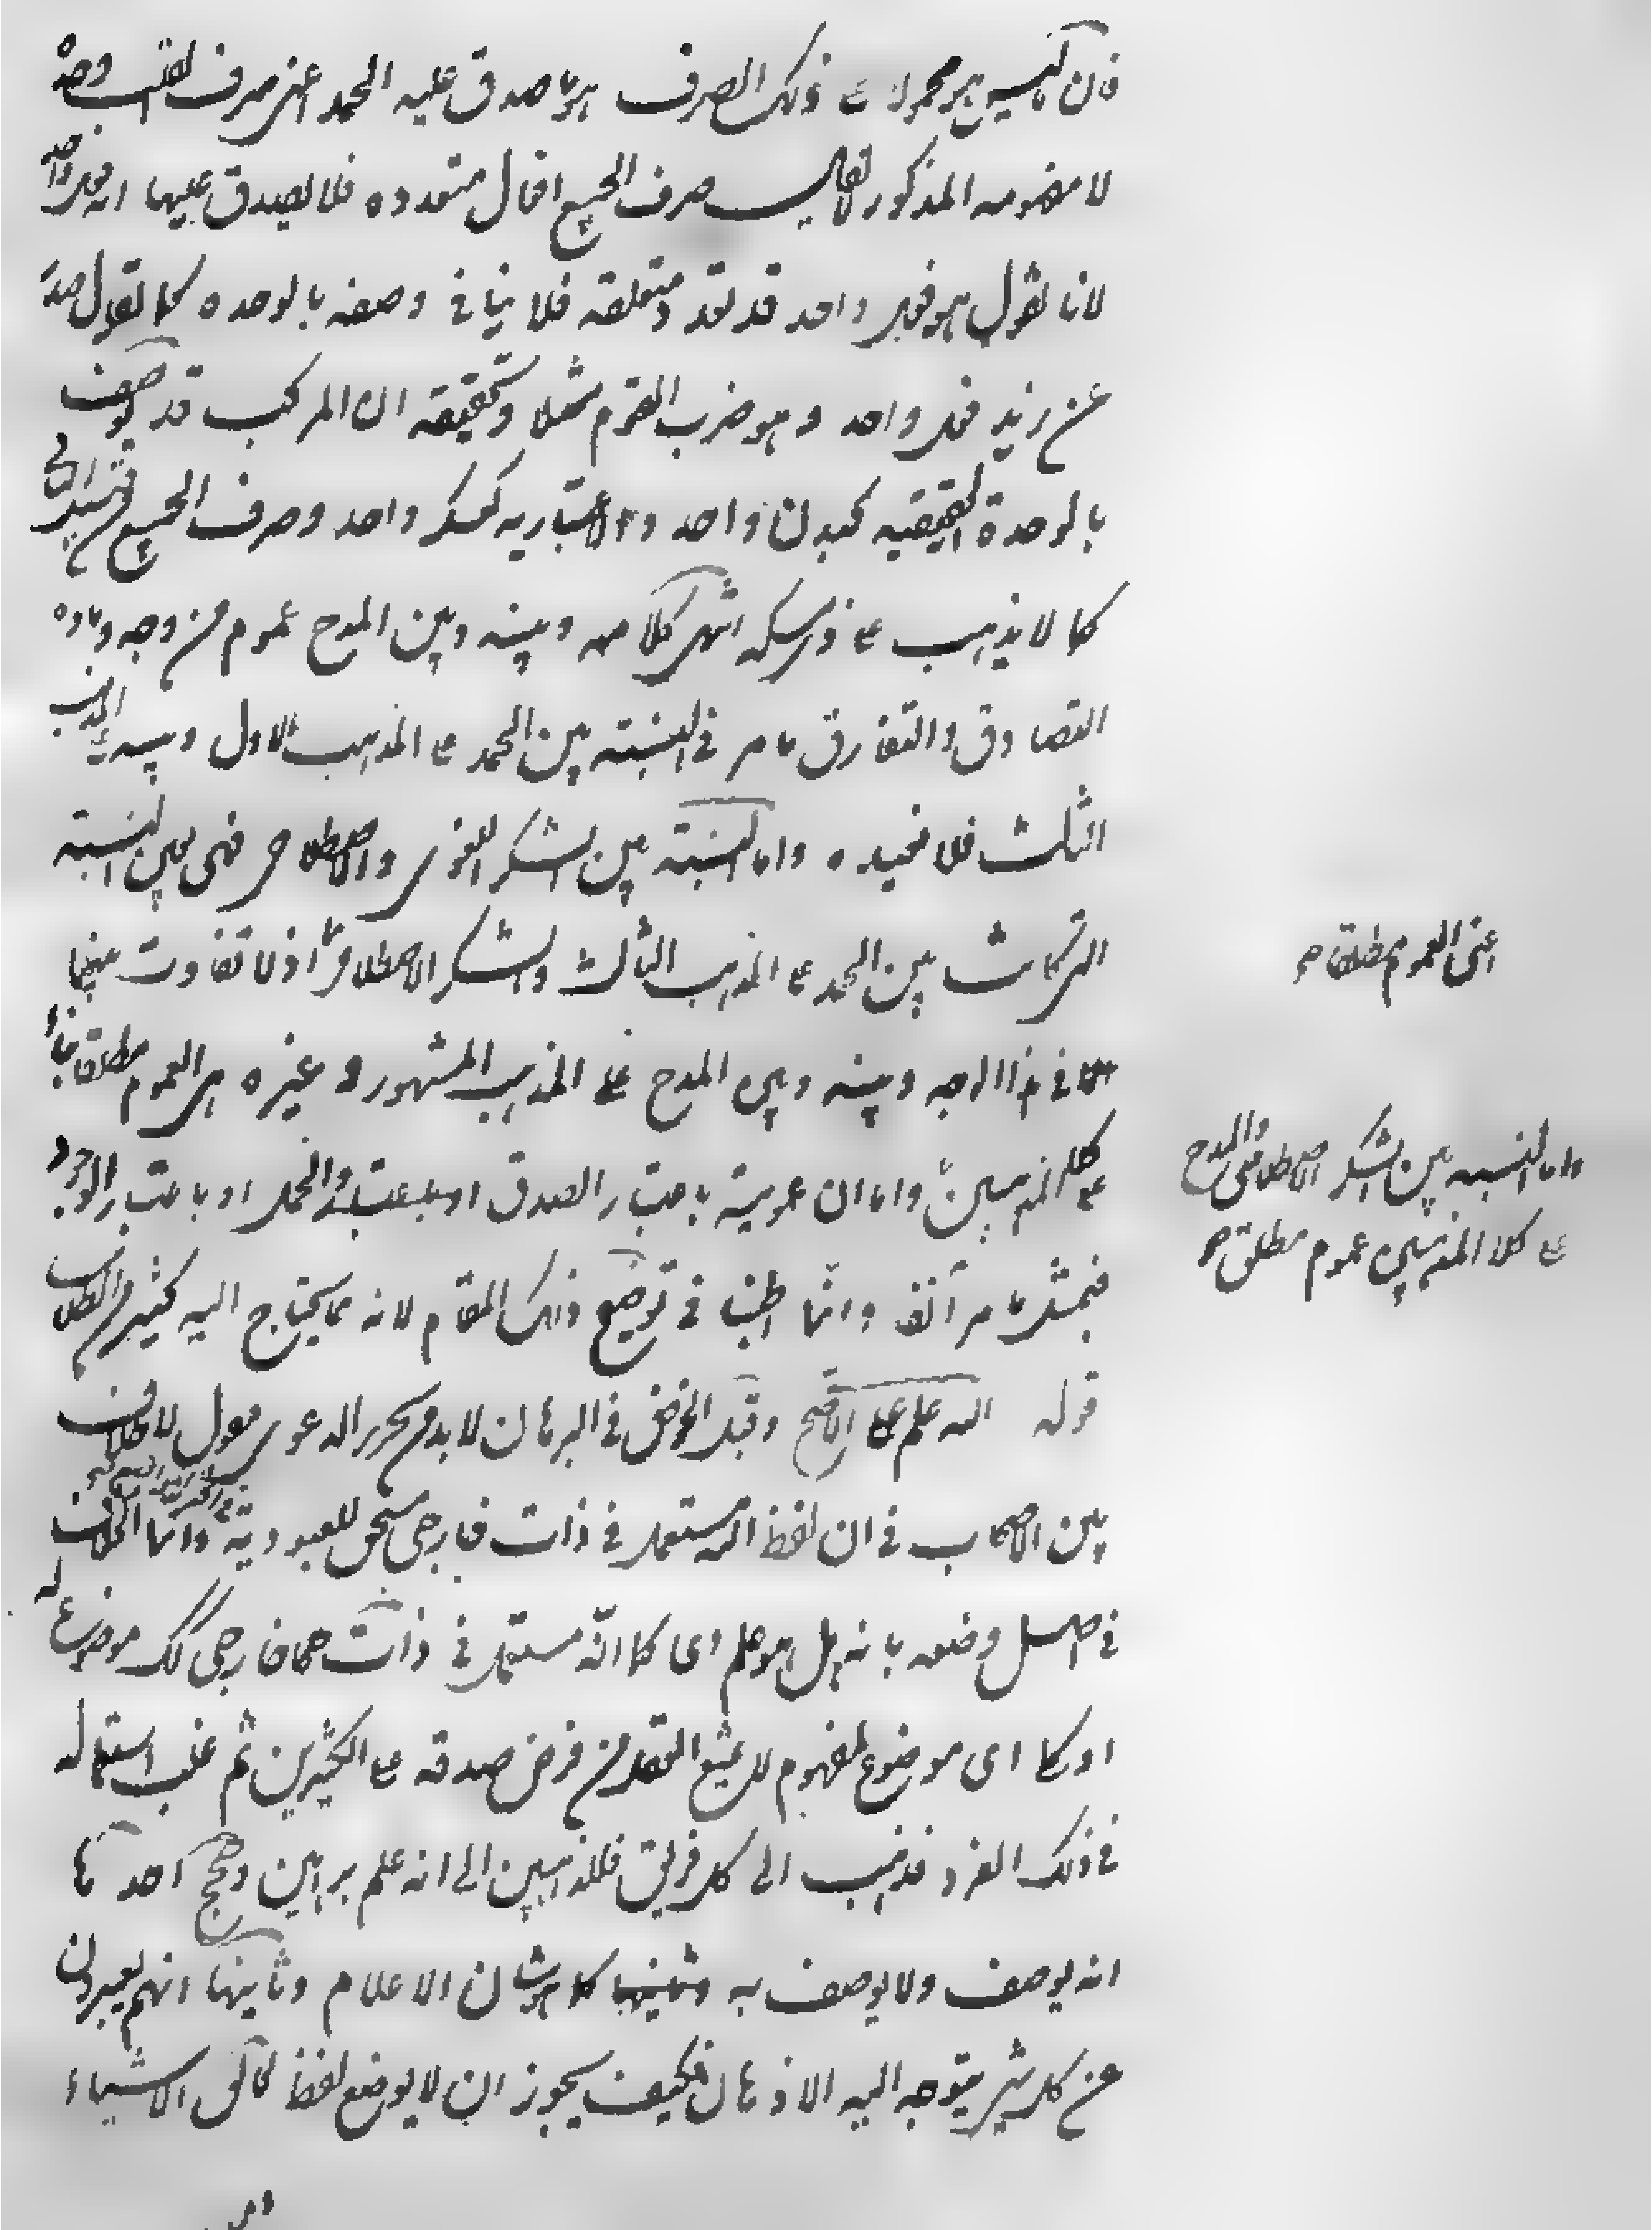 فان ليس هو محمولا على ذلك الصرف هو ما صدق عليه الحمد اعنى صرف القلب وحده
لا مفهومه المذكور لا يقال صرف الجميع افعال متعدده فلا يصدق عليها انه فعل واحد
لانا نقول هو فعل واحد قد تعدد متعلقه فلا ينافى وصفه بالوحده كما تقول صدر
عن زيد فعل واحد وهو ضرب القوم مثلا وتحقيقه ان المركب قد يوصف
بالوحدة الحقيقيه كبدن واحد والاعتباريه كعسكر واحد وصرف الجميع من قبيل الثانى
كما لا يذهب على ذى مسكه انتهى كلامه وبينه وبين المدح عموم من وجه وماده
التصادق والتفارق ما مر فى النسبته بين الحمد على المذهب الاول وبينه على المذهب
الثالث فلا نعيده واما النسبته بين الشكر اللغوى والاصطلاحى فهى بعين النسبته
التى كانت بين الحمد على المذهب الثالث والشكر الاصطلاحى اذ لا تفاوت بينهما
فى هذا الوجه وبينه وبين المدح على المذهب المشهور وغيره هى العموم مطلقا
على كلا المذهبين واما ان عموميته باعتبار الصدق او باعتبار الحمل او باعتبار الوجود
فبمثل ما مر آنفا وانما اطنبنا فى توضيح ذلك المقام لانه مما يحتاج اليه كثير من الطلاب
قوله الله علم على الاصح وقبل الخوض فى البرهان لا بد من تحرير الدعوى فنقول لا خلاف
بين الاصحاب فى ان لفظ الله مستعمل فى ذات خارجى مستحق للعبودية وانما الخلاف
فى اصل وضعه بانه هل هو علم اى كما انه مستعمل فى ذات خارجى كذلك موضوع له
او كلى اى موضوع لمفهوم لا يمنع العقل من فرض صدقه على الكثيرين ثم غلب استعماله
فى ذلك الفرد فذهب الى كل فريق فللذاهبين الى انه علم براهين وحجج احدها
انه يوصف ولا يوصف به كما هو شان الاعلام وثانيها انهم يعبرون
عن كل شىء يتوجه اليه الاذهان فكيف يجوز ان لا يوضع لفظ لخالق الاشياء
اعنى العموم مطلقا صح
واما النسبه بين الشكر الاصطلاحى والمدح
على كلا المذهبين عموم مطلق صح